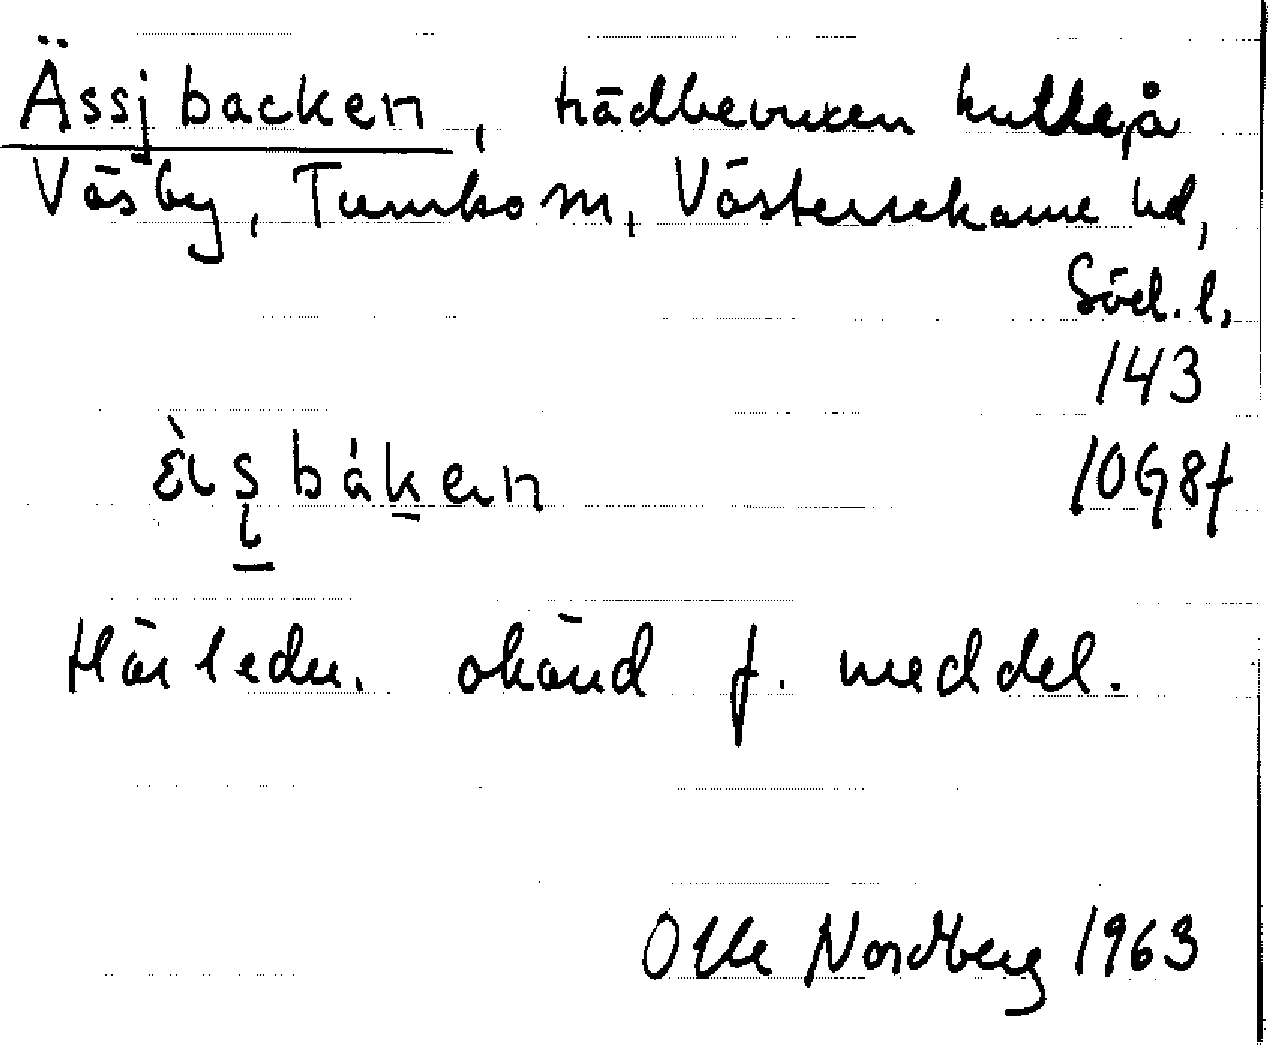 Ässjbacken, trädbevuxen kulle på
Väsby, Tumbo sn, Västerrekarne hd,
Söd. l.
143
10G8f
Härledn. okänd f. meddel.
Olle Nordberg 1963